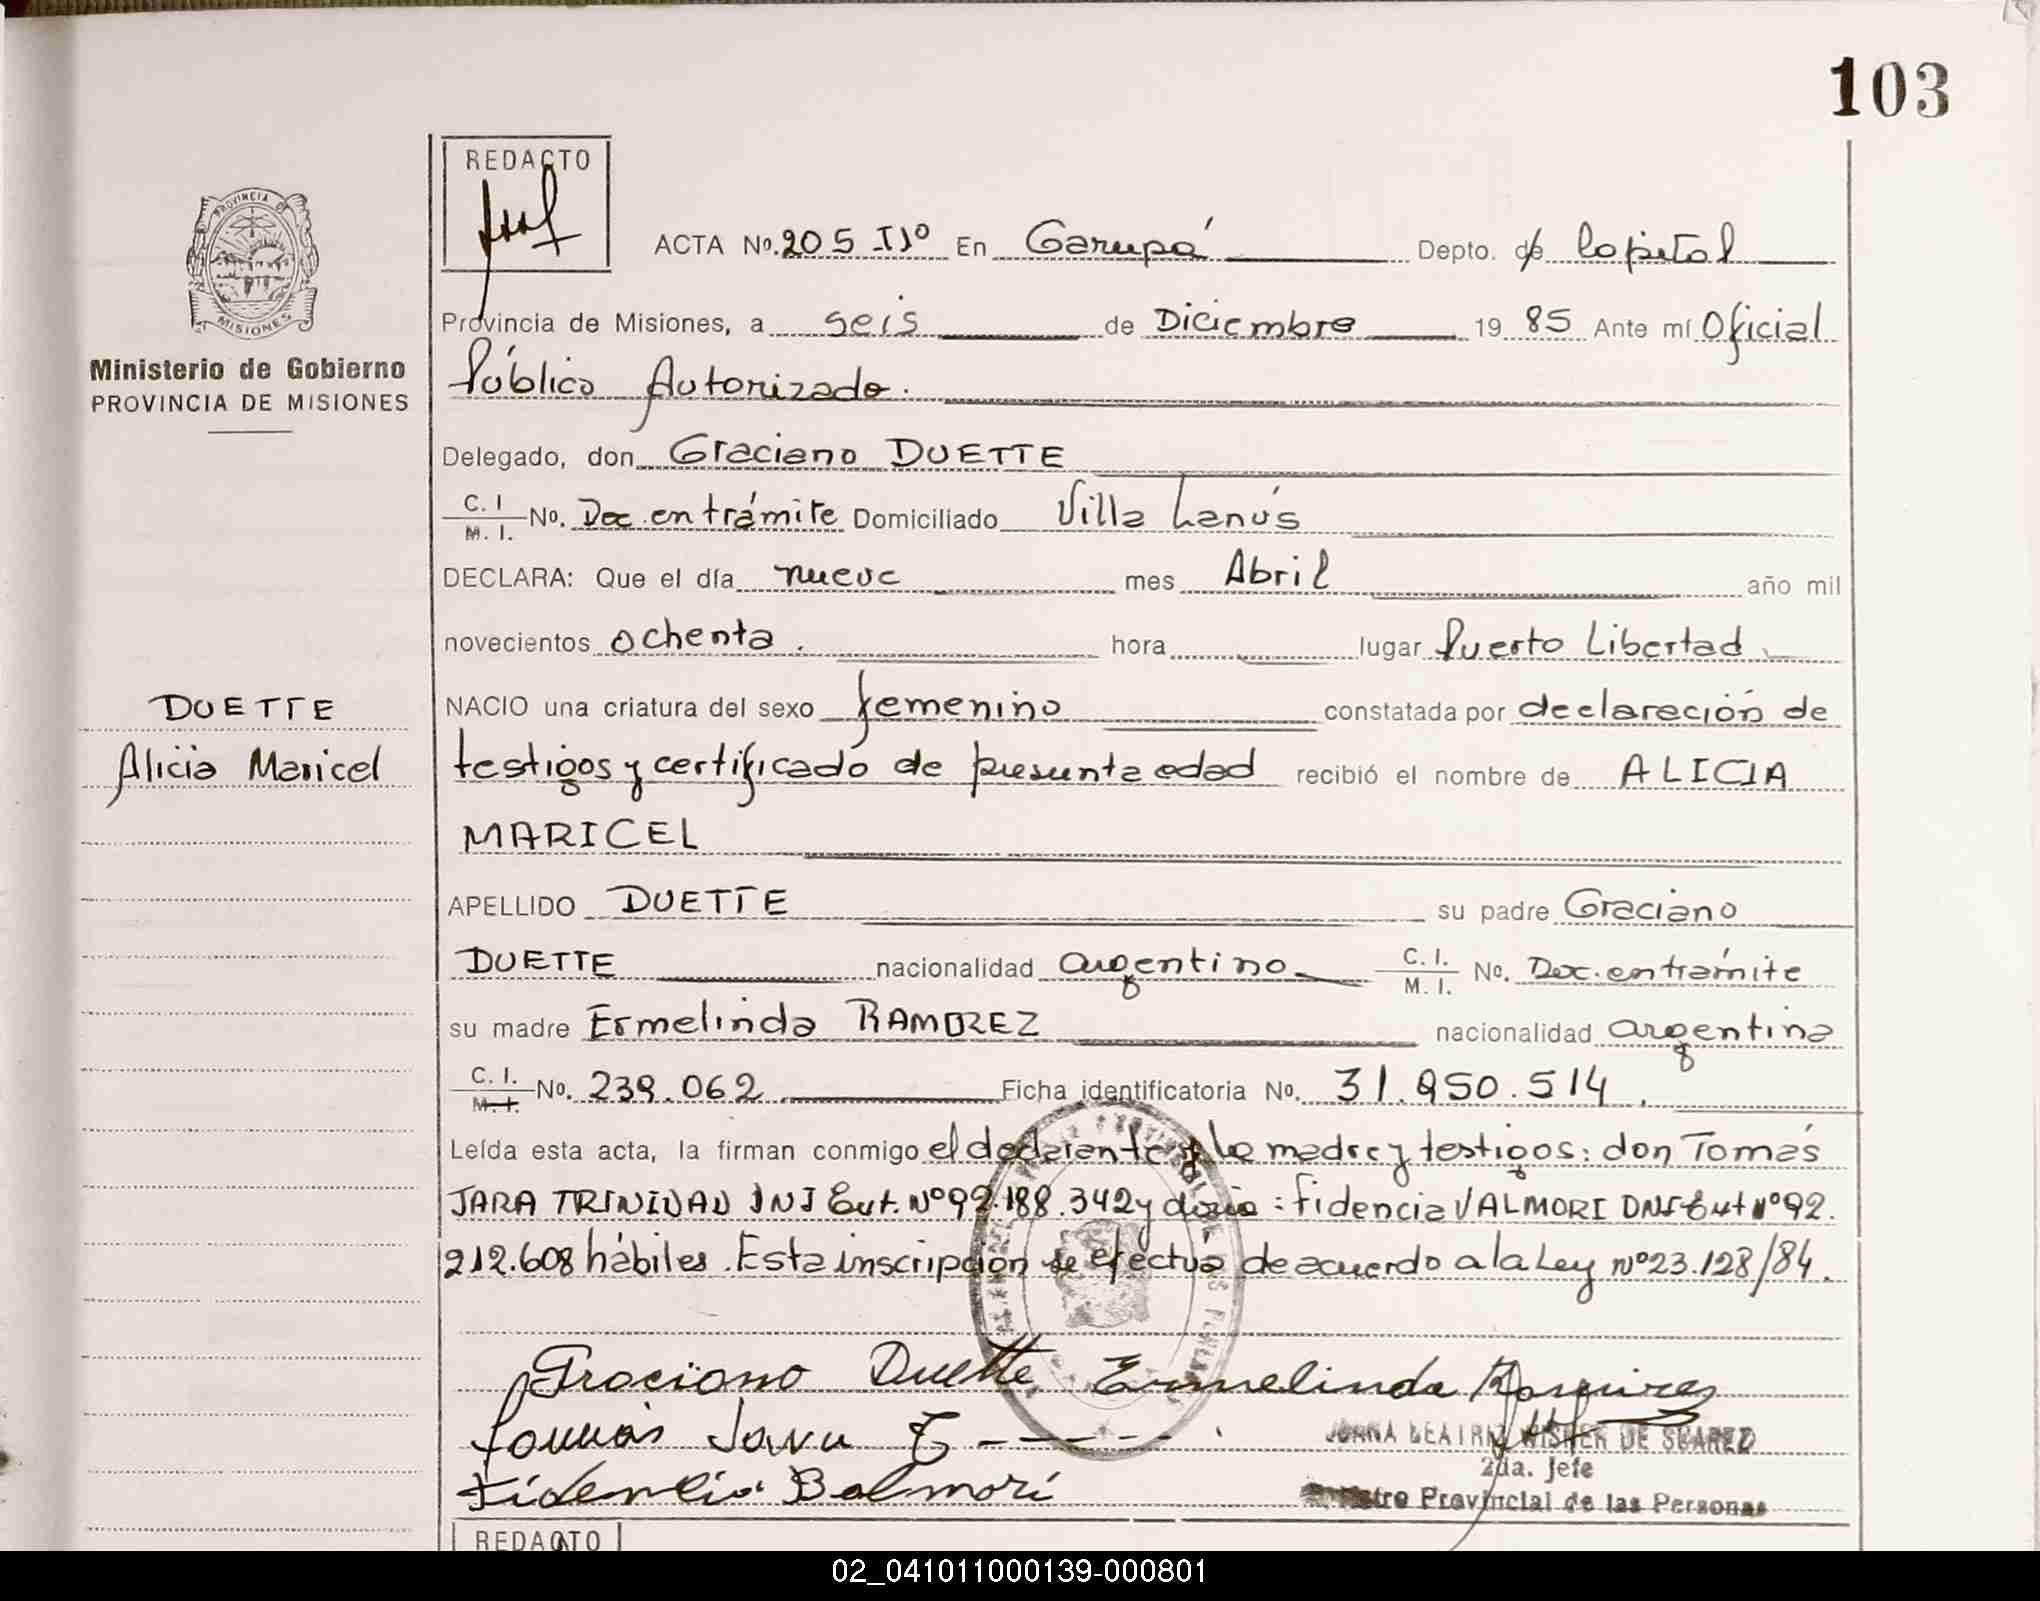 103
REDACTO
ACTA No. 205 Tº En Garupá Depto. de Capital
Provincia de Misiones, a seis de Diciembre 19 85 Ante mí Oficial
Público Autorizado.
PROVINCIA DE
MISIONES
Ministerio de Gobierno
PROVINCIA DE MISIONES
Delegado, don Graciano DUETTE
C. I
M. I. No. Doc. en trámite Domiciliado Villa Lanús
DECLARA: Que el día nueve mes Abril año mil
novecientos ochenta. hora lugar Puerto Libertad
DUETTE
Alicia Maricel
NACIO una criatura del sexo femenino constatada por declaración de
testigos y certificado de presunta edad recibió el nombre de ALICIA
MARICEL
APELLIDO DUETTE su padre Graciano
DUETTE nacionalidad argentino C. I.
M. I. No. Doc. en trámite
su madre Ermelinda RAMIREZ nacionalidad argentina
C. I.
M. I. No. 239.062 Ficha identificatoria No. 31.950.514.
Leída esta acta, la firman conmigo el declarante y la madre y testigos: don Tomás
JARA TRINIDAD DNI Ext. Nº 92.188.342 y doña: Fidencia VALMORI DNI Ext Nº 92.
212.608 hábiles. Esta inscripción se efectua de acuerdo a la Ley nº 23.128/84.
Graciano Duette Ermelinda Ramires
Tomás Jara T
Fidencia Balmori
BEATRIZ DE SUAREZ
2da. Jefe
Provincial de las Personas
REDACTO
02_041011000139-000801